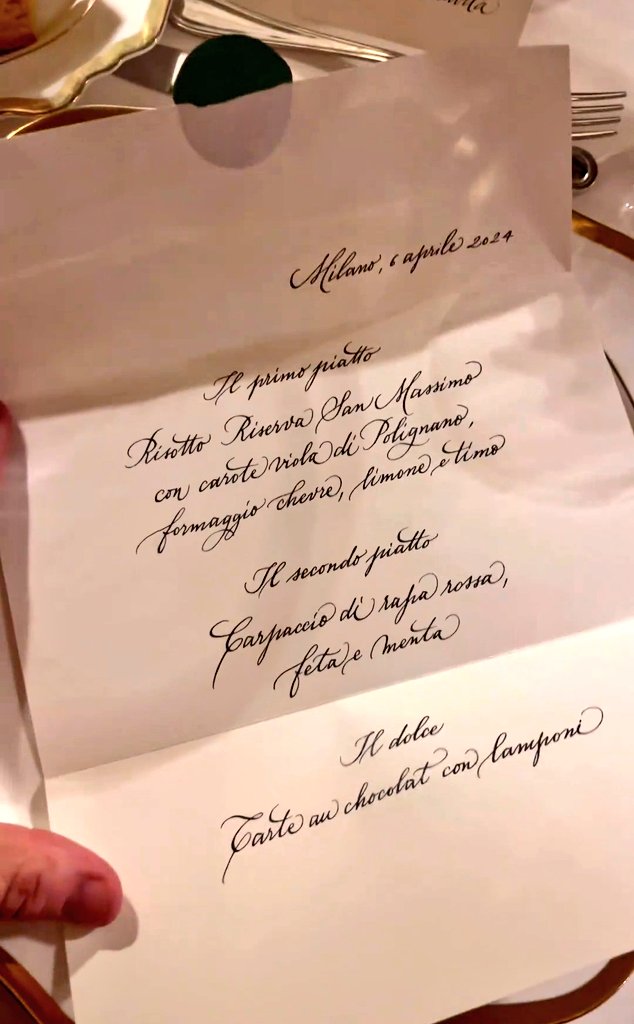 Milano, 6 aprile 2024
Il primo piatto
Risotto Riserva San Massimo
con carote viola di Polignano,
formaggio chevre, limone e timo
Il secondo piatto
Carpaccio di rapa rossa,
feta e menta
Il dolce
Tarte au chocolat con lamponi